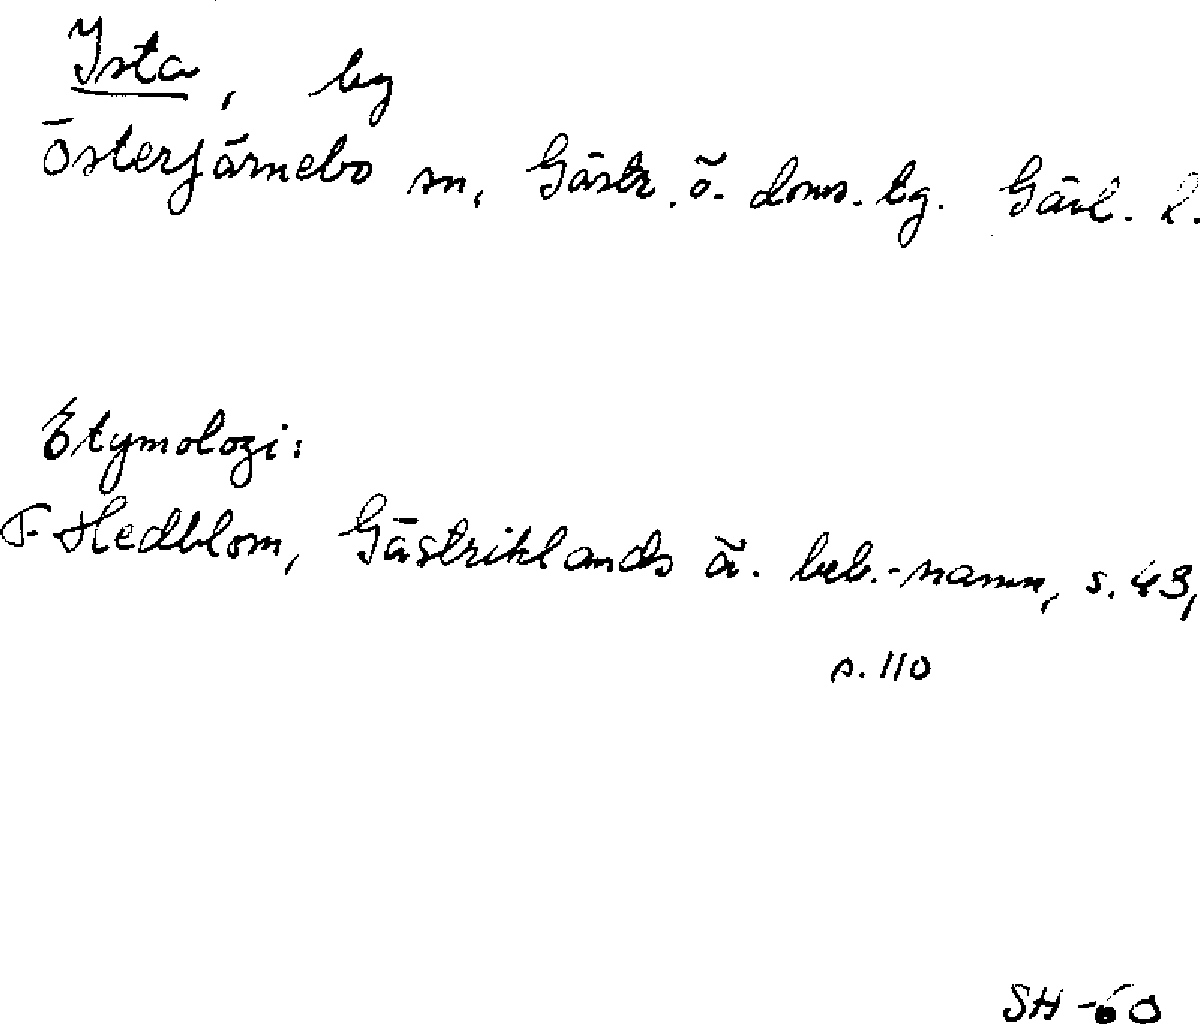 Ista, by
Österfärnebo sn, Gästr. ö. doms. bg. Gävl. l.
Etymologi:
F. Hedblom, Gästriklands ä. beb.-namn, s. 43,
s. 110
SH -60